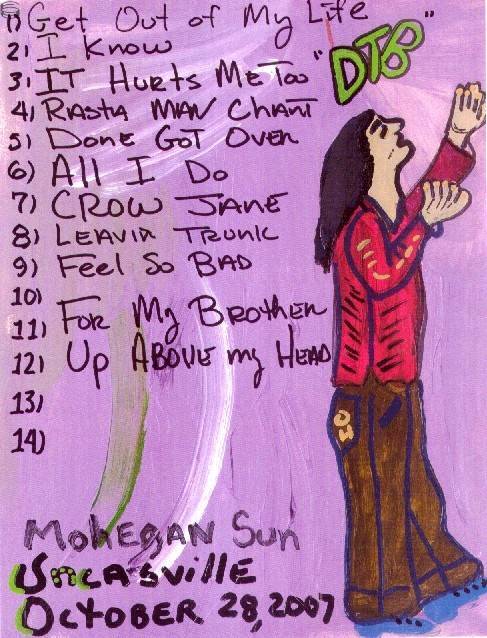 1) Get Out of My Life
2) I Know
"DTB"
3) IT Hurts Me Too
4) Rasta MAN Chant
5) Done Got Over
6) All I Do
7) CROW JANE
8) LEAVIN TRUNK
9) Feel So BAD
10)
11) FOR My BROTHER
12) Up ABOVE my HEAD
13)
14)
MOHEGAN Sun
UncASVille
OCTOBER 28, 2007